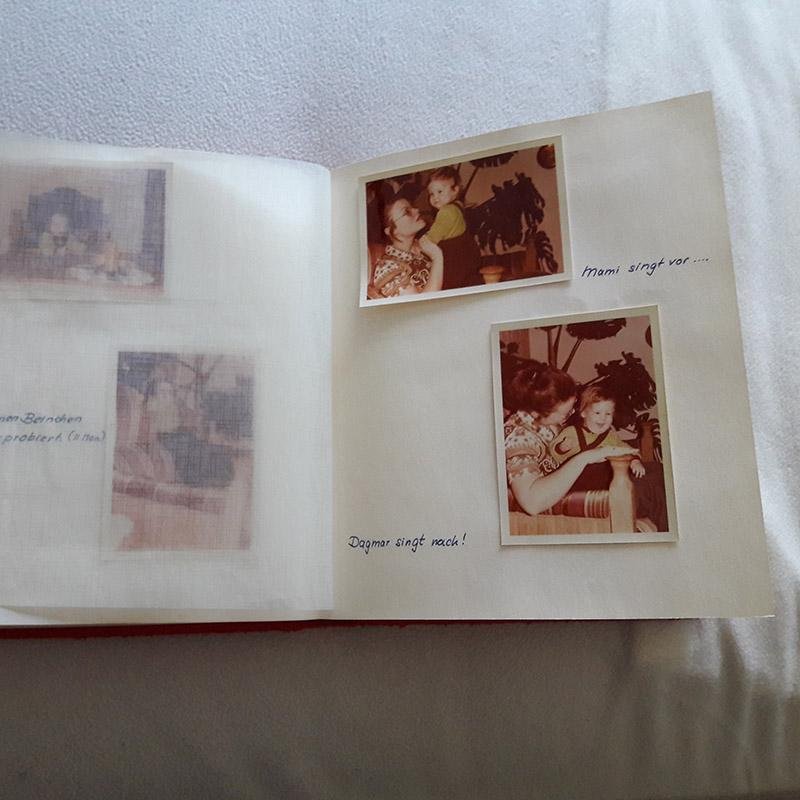 Beinchen
probiert. (11 Mon)
Mami singt vor ....
Dagmar singt nach!